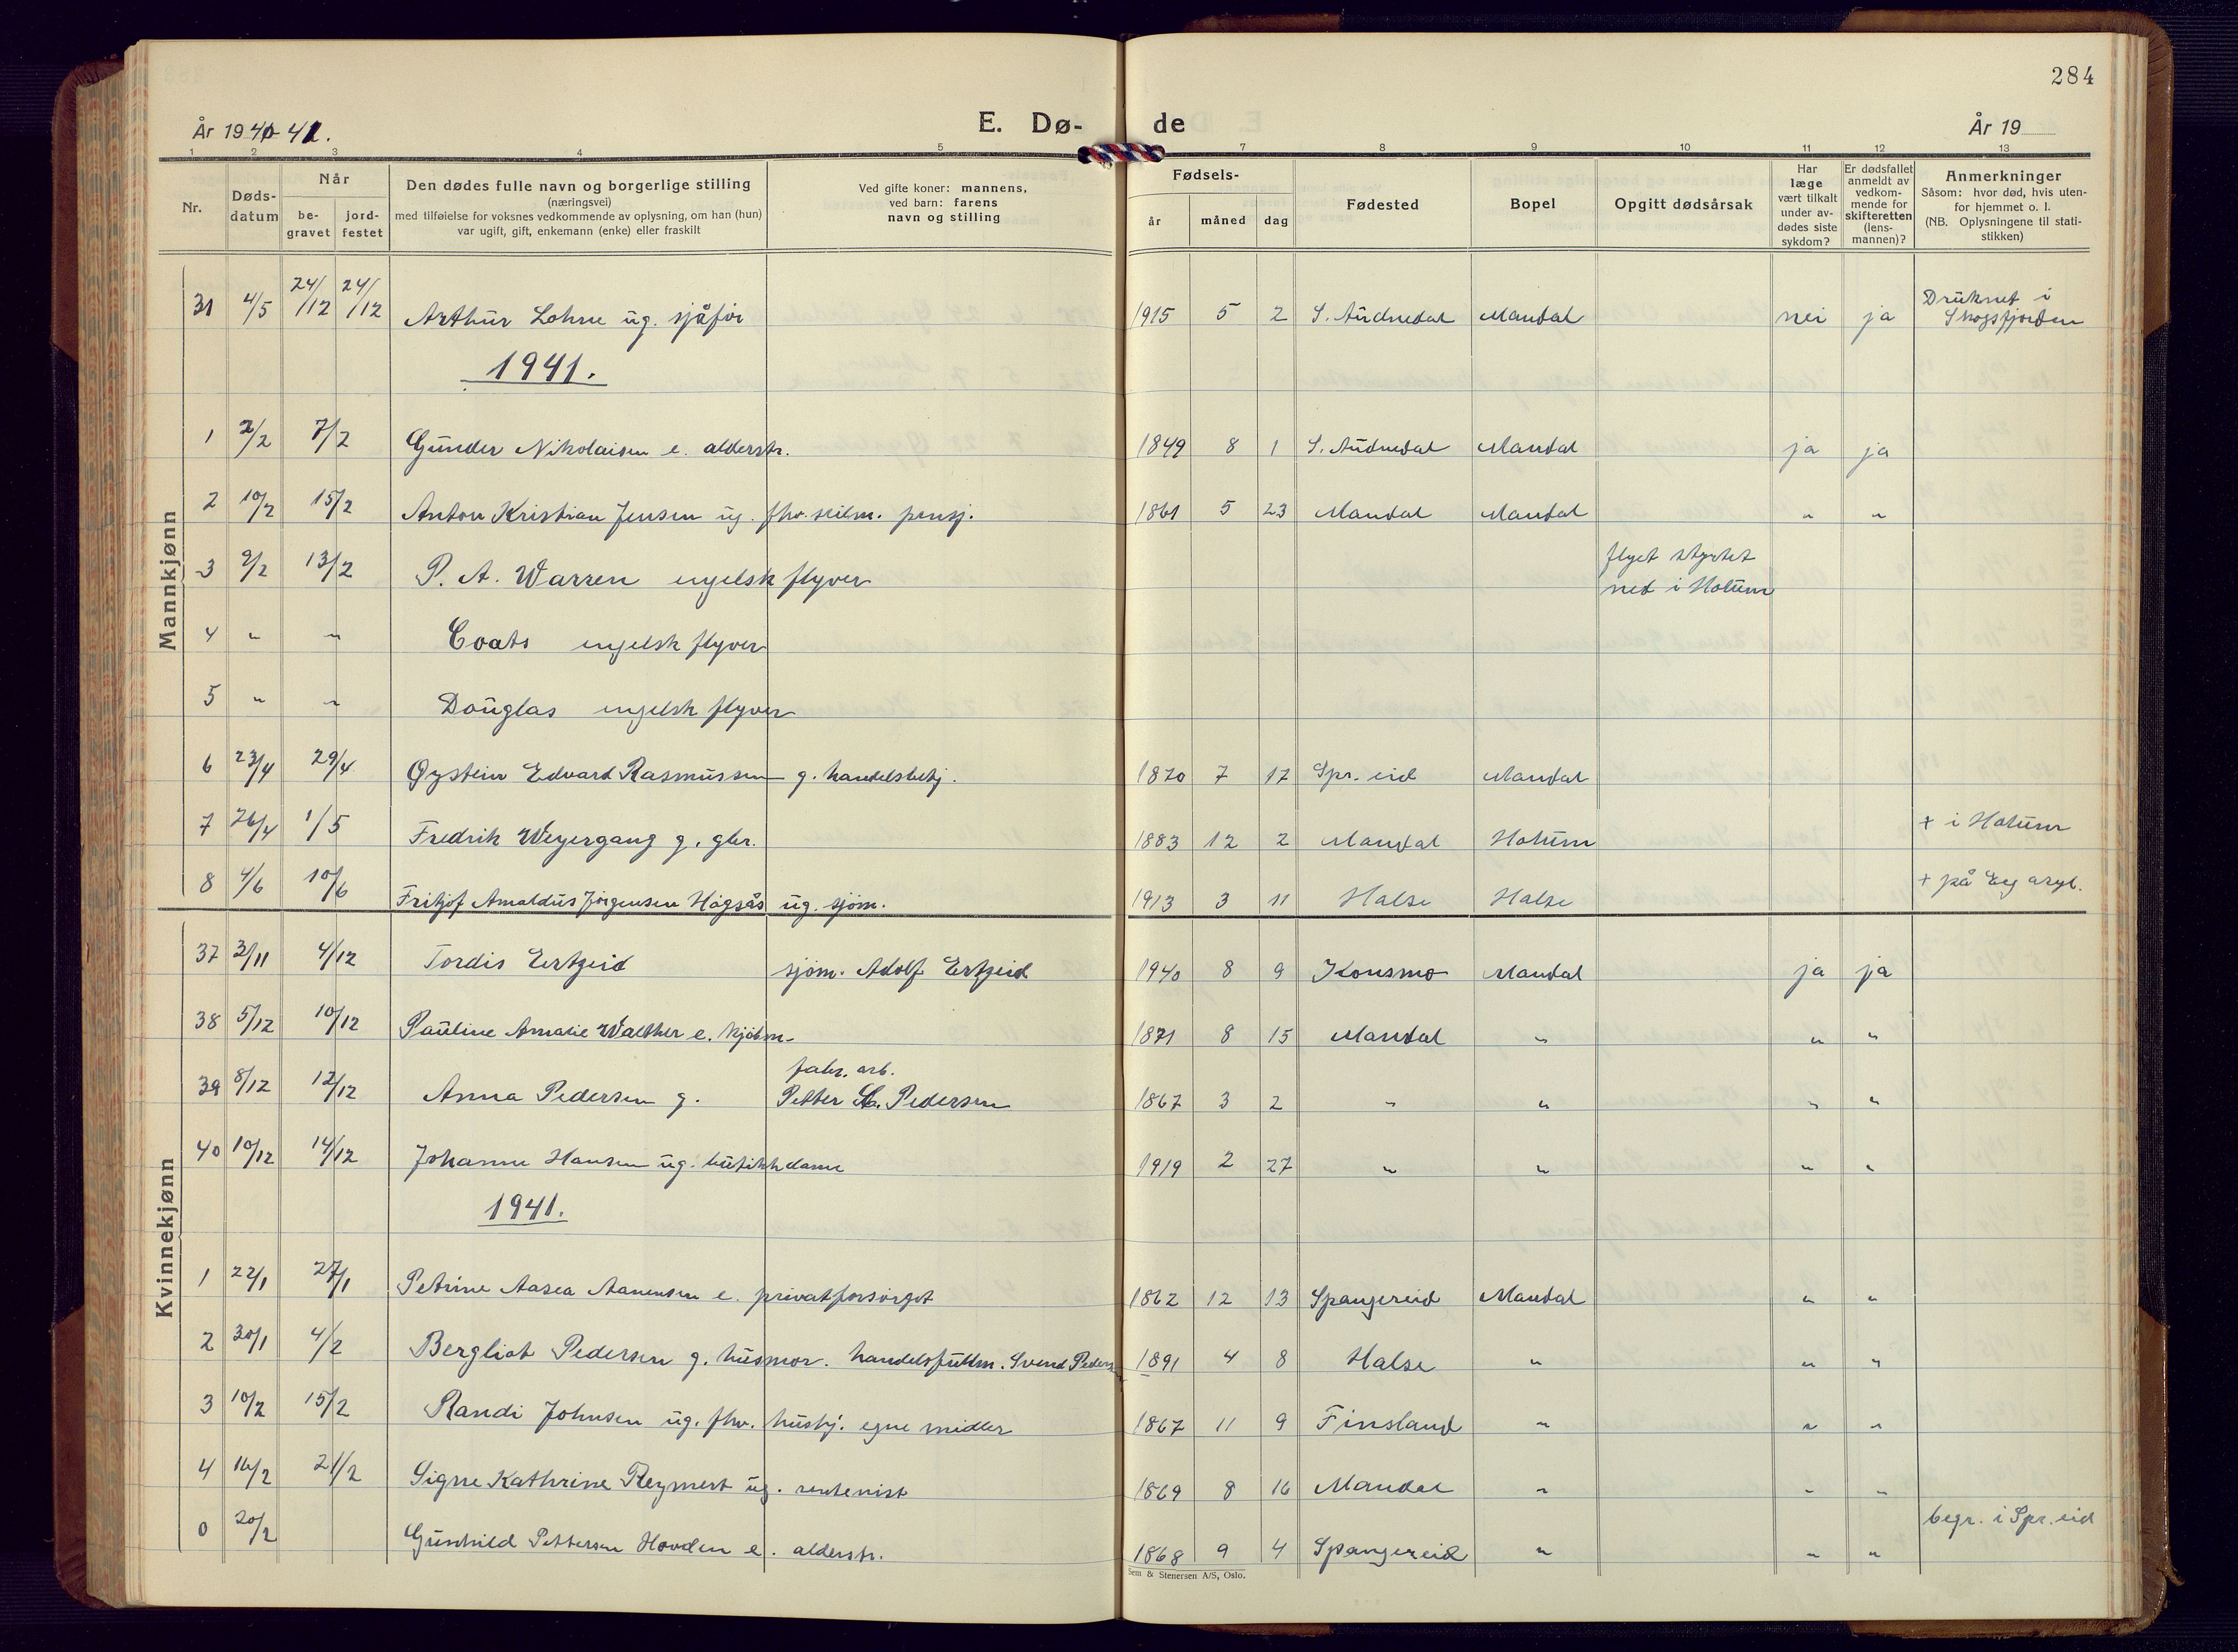 284
År 1940-41.
E. Dø-
de
År 19
1 2 3 4 5 7 8 9 10 11 12 13
Nr.
Døds-
datum
Når
be-
gravet
jord-
festet
Den dødes fulle navn og borgerlige stilling
(næringsvei)
med tilføielse for voksnes vedkommende av oplysning, om han (hun)
var ugift, gift, enkemann (enke) eller fraskilt
Ved gifte koner: mannens,
ved barn: farens
navn og stilling
Fødsels-
år
måned
dag
Fødested
Bopel
Opgitt dødsårsak
Har
læge
vært tilkalt
under av-
dødes siste
sykdom?
Er dødsfallet
anmeldt av
vedkom-
mende for
skifteretten
(lens-
mannen)?
Anmerkninger
Såsom: hvor død, hvis uten-
for hjemmet o. l.
(NB. Oplysningene til stati-
stikken)
Mannkjønn
31 4/5 24/12 24/12 Arthur Lohne ug. sjåfør 1915 5 2 S. Audnedal Mandal nei ja Druknet i
Skogsfjorden
1941.
1 2/2 7/2 Gunder Nikolaisen e. alderstr. 1849 8 1 S. Audnedal Mandal ja ja
2 10/2 15/2 Anton Kristian Jensen ug. fhv. seilm. pensj. 1861 5 23 Mandal Mandal " "
3 9/2 13/2 P. A. Warren engelsk flyver flyet styrtet
ned i Holum
4 " " Coats engelsk flyver
5 " " Douglas engelsk flyver
6 23/4 29/4 Øystein Edvard Rasmussen g. handelsbetj. 1870 7 17 Spr. eid Mandal
7 26/4 1/5 Fredrik Weyergang g. gbr. 1883 12 2 Mandal Holum + i Holum
8 4/6 10/6 Fritjof Arnaldus Jørgensen Høgsås ug. sjøm. 1913 3 11 Halse Halse + på Eg asyl.
Kvinnekjønn
37 3/11 4/12 Tordis Ertzeid sjøm. Adolf Ertzeid 1940 8 9 Konsmo Mandal ja ja
38 5/12 10/12 Pauline Amalie Walther e. kjøbm. 1871 8 15 Mandal " " "
39 8/12 12/12 Anna Pedersen g. fabr. arb.
Petter Pedersen 1867 3 2 " " " "
40 10/12 14/12 Johanne Hansen ug. butikkdame 1919 2 27 " " " "
1941.
1 22/1 27/1 Petrine Aasea Aanensen e. privatforsørget 1862 12 13 Spangereid Mandal " "
2 30/1 4/2 Bergliot Pedersen g. husmor. handelsfullm. Svend Peders 1891 4 8 Halse " " "
3 10/2 15/2 Randi Johnsen ug. fhv. husbj. egne midler 1867 11 9 Finsland " " "
4 16/2 21/2 Signe Kathrine Reymert ug. rentenist 1869 8 16 Mandal " " "
0 20/2 Gunhild Pettersen Hovden e. alderstr. 1868 9 4 Spangereid " " " begr. i Spr. eid
Sem & Stenersen A/S, Oslo.